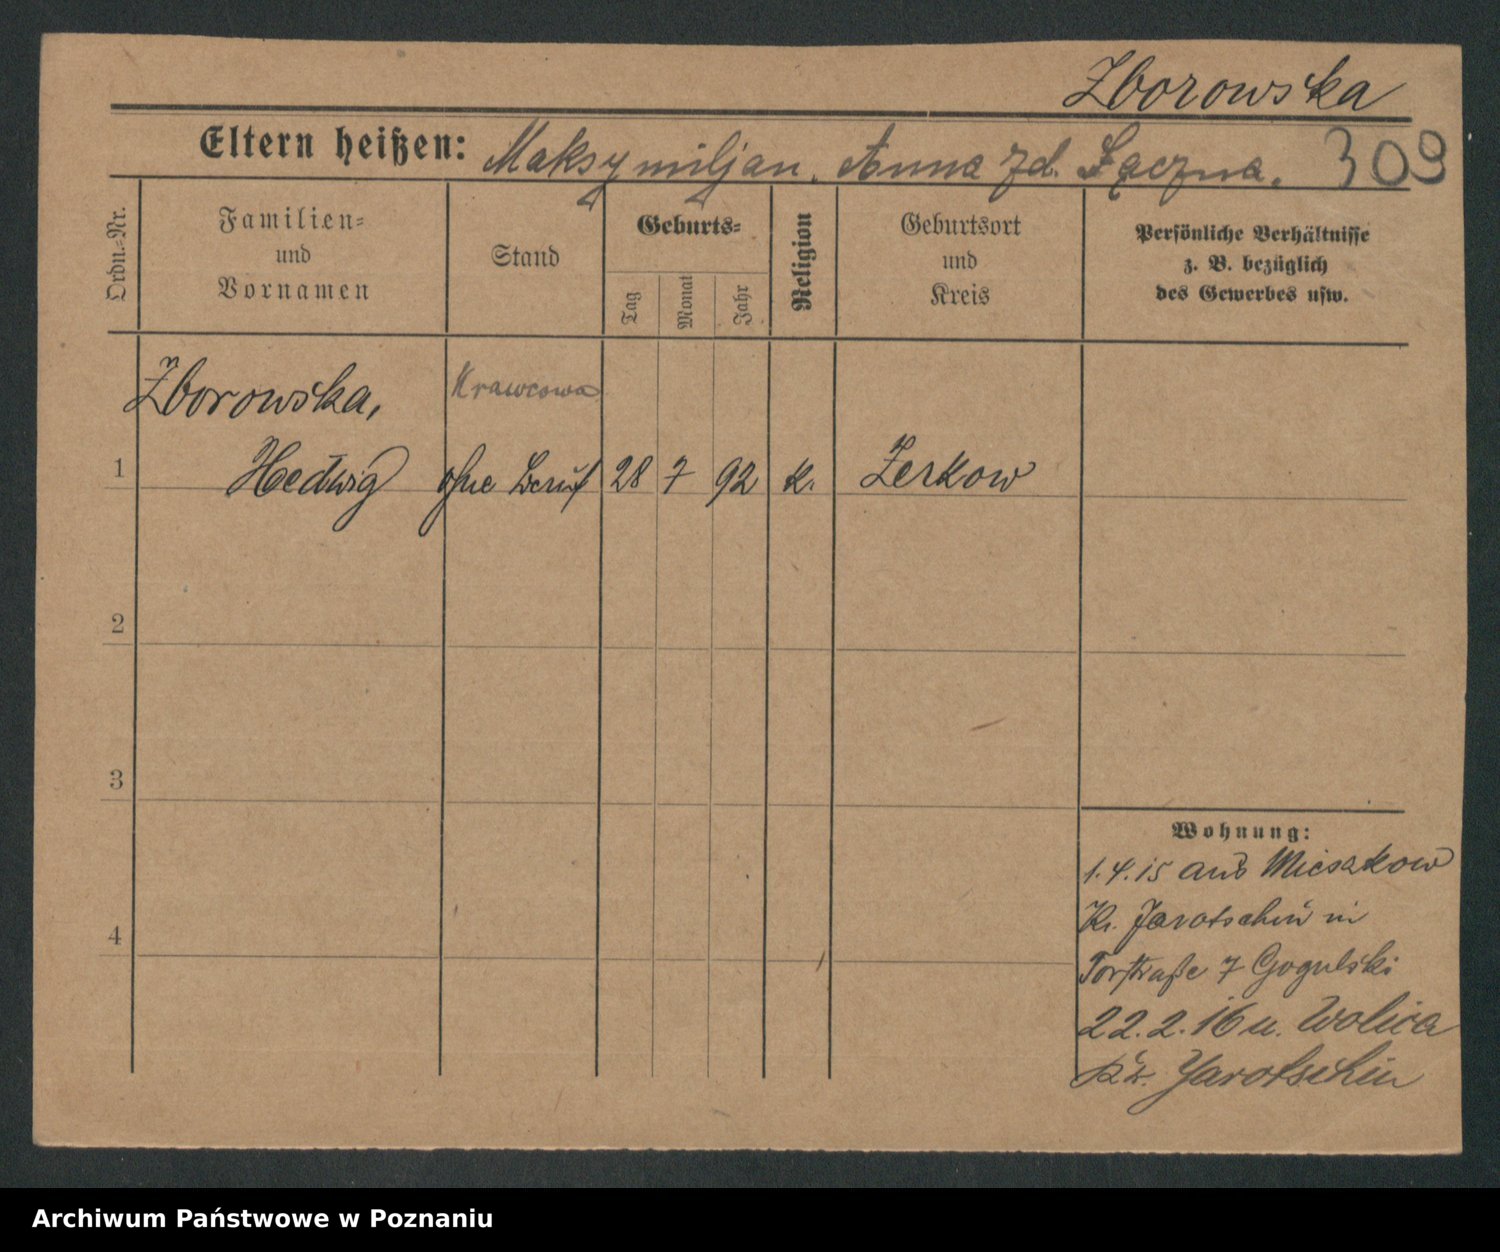 Zborowska
Eltern heißen: Maksymiljan, Anna zd. Łączna. 309
Ordn.=Nr.
Familien=
und
Vornamen
Stand
Geburts=
Tag
Monat
Jahr
Religion
Geburtsort
und
Kreis
Persönliche Verhältnisse
z. B. bezüglich
des Gewerbes usw.
Zborowska, Krawcowa
1 Hedwig ohne Beruf 28 7 92 K. Zerkow
2
3
4
Wohnung:
1.4.15 aus Mieszkow
Kr. Jarotschin in
Torstraße 7 Gogulski
22.2.16 n. Wolica
Kr. Jarotschin
Archiwum Państwowe w Poznaniu